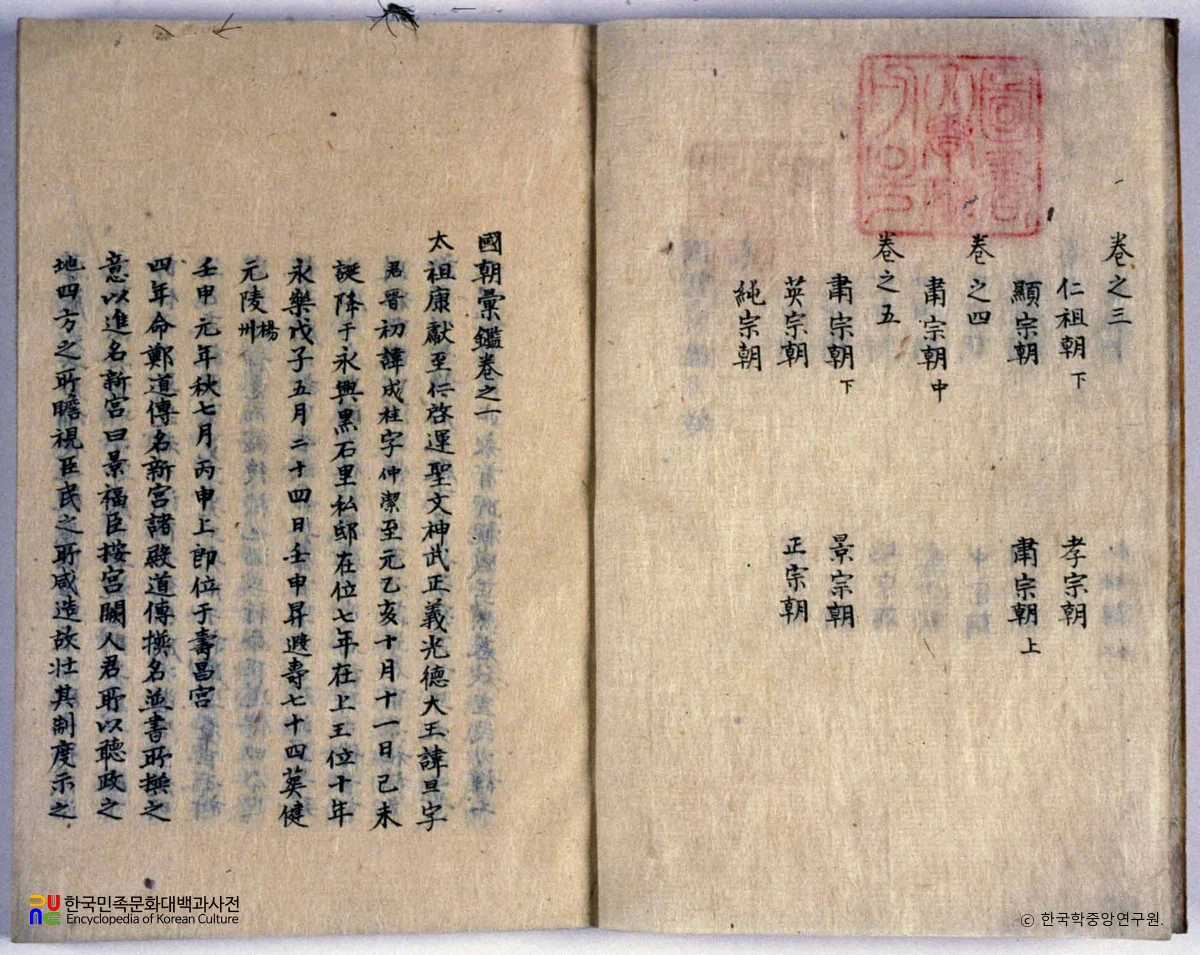 卷之三
仁祖朝下 孝宗朝
顯宗朝 肅宗朝上
卷之四
肅宗朝中
卷之五
肅宗朝下 景宗朝
英宗朝 正宗朝
純宗朝
國朝彙鑑卷之一
太祖康獻至仁啓運聖文神武正義光德大王諱旦字
君晋初諱成桂字仲潔至元乙亥十月十一日己未
誕降于永興黑石里私邸在位七年在上王位十年
永樂戊子五月二十四日壬申昇遐壽七十四葬健
元陵楊州
壬申元年秋七月丙申上卽位于壽昌宮
四年命鄭道傳名新宮諸殿道傳撰名並書所撰之
意以進名新宮曰景福臣按宮闕人君所以聽政之
地四方之所瞻視臣民之所咸造故壯其制度示之
한국민족문화대백과사전
Encyclopedia of Korean Culture
© 한국학중앙연구원.